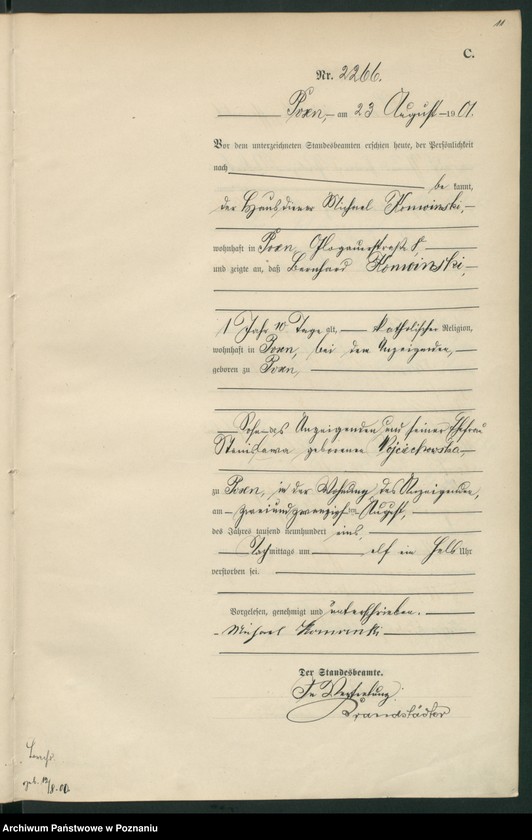 11
C.
Nr. 2266.
Posen, am 23 August 1901.
Vor dem unterzeichneten Standesbeamten erschien heute, der Persönlichkeit
nach
be kannt,
der Hausdiener Michael Konwinski,
wohnhaft in Posen, Glogauerstraße
und zeigte an, daß Bernhard Konwinski,
1 Jahr 10 Tage alt, katholischer Religion,
wohnhaft in Posen, bei dem Anzeigenden,
geboren zu Posen,
Sohn des Anzeigenden und seiner Ehefrau
Stanislawa geborenen Wojciechowska
zu Posen, in der Wohnung des Anzeigenden,
am zweiundzwanzigsten August,
des Jahres tausend neunhundert eins,
Nachmittags um elf ein halb Uhr
verstorben sei.
Vorgelesen, genehmigt und unterschrieben.
Michael
Der Standesbeamte.
In Vertretung.
Brandstädter
geb. 12/8.00.
Archiwum Państwowe w Poznaniu